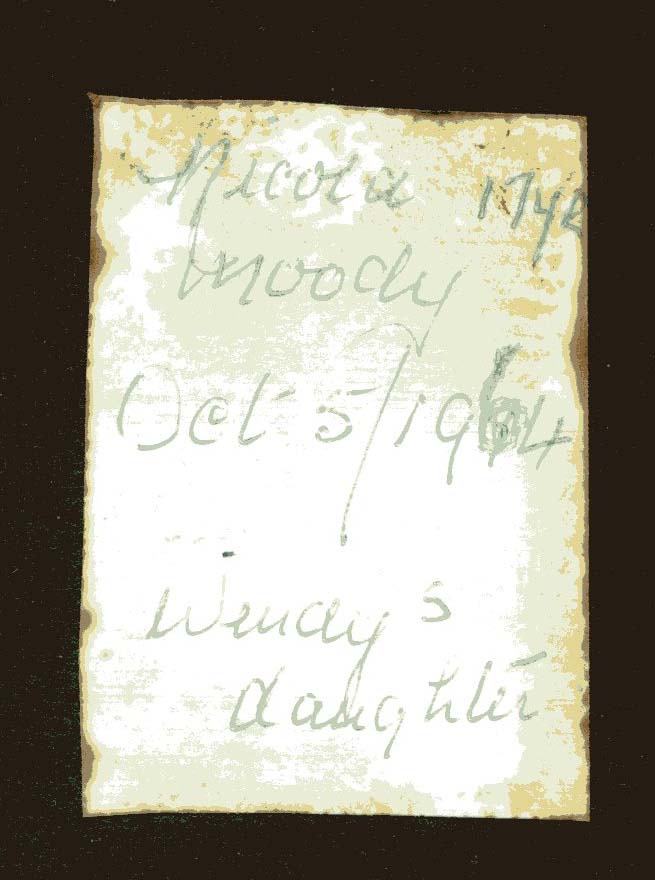 Nicola 17yr
Moody
Oct 5/1964
Wendy's
daughter